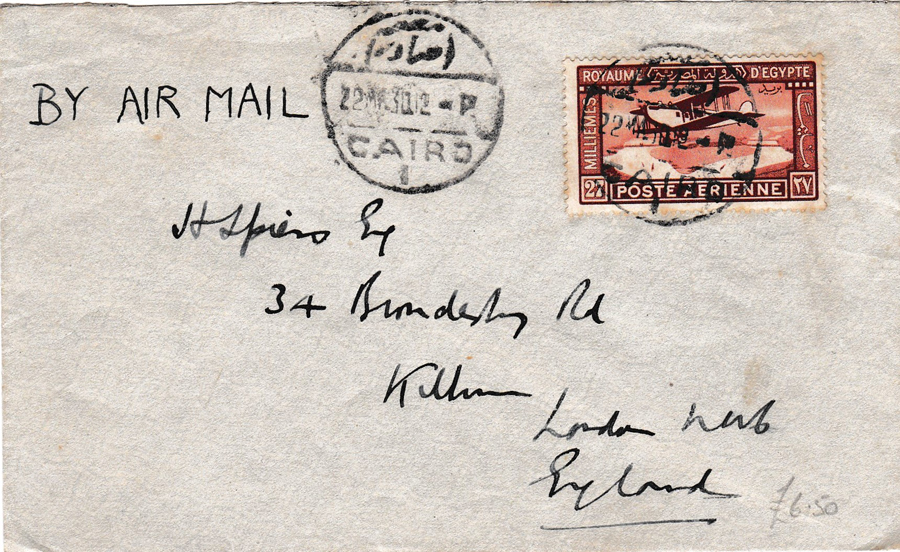 BY AIR MAIL
22 MR.30.12 - P
CAIRO
1
ROYAUME D'EGYPTE
MILLIEMES
بريد
27 POSTE AERIENNE ٢٧
H Spiers Esq
34 Brondesbury Rd
Kilburn
London NW6
England
£6.50